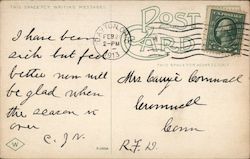 THIS SPACE FOR WRITING MESSAGES
POST CARD
FEB
2-PM
1913
THIS SPACE FOR ADDRESS ONLY
I have been
sick but feel
better now will
be glad when
the season is
over
C. J. N.
Mrs Cornwall
Cromwell
Conn
R.F.D.
W